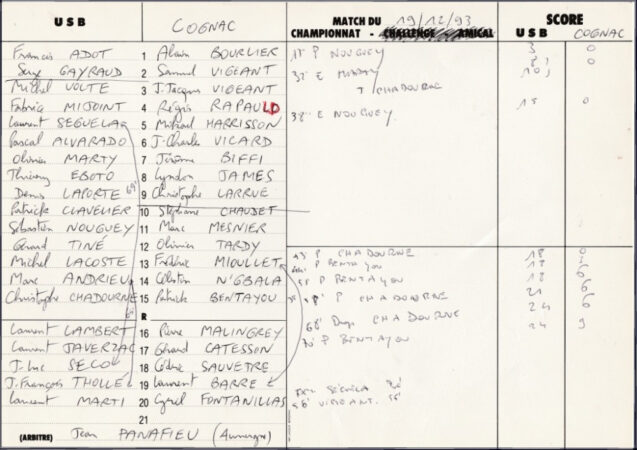 USB COGNAC MATCH DU 19/12/93 SCORE
CHAMPIONNAT - CHALLENGE - AMICAL USB COGNAC
Francis ADOT 1 Alain BOURLIER
Serge GAYRAUD 2 Samuel VIGEANT
Michel VOLTE 3 J. Jacques VIGEANT
Fabrice MIJOINT 4 Régis RAPAULD
Laurent SEGUELA 5 Michael HARRISSON
Pascal ALVARADO 6 J-Charles VICARD
Olivier MARTY 7 Jérôme BIFFI
Thierry EBOTO 8 Lyndon JAMES
Denis LAPORTE 9 Christophe LARRUE
Patrick CLAVELIER 10 Stéphane CHAUDET
Sébastien NOUGUEY 11 Marc MESNIER
Gérard TINÉ 12 Olivier TARDY
Michel LACOSTE 13 Frédéric MIOULLET
Marc ANDRIEU 14 Célestin N'GBALA
Christophe CHADOURNE 15 Patrick BENTAYOU
R
Laurent LAMBERT 16 Pierre MALINGREY
Laurent JAVERZAC 17 Gérard CATESSON
J. Luc SECO 18 Cédric SAUVETRE
J. François THOLLE 19 Laurent BARRE
Laurent MARTI 20 Cyril FONTANILLAS
21
(ARBITRE) Jean PANAFIEU (Auvergne)
P NOUGUEY 3 0
32' E 0
T CHADOURNE
38' E NOUGUEY 15 0
P CHADOURNE 18 0
P BENTAYOU 18 3
P BENTAYOU 18 6
P CHADOURNE 21 6
68' Drop CHADOURNE 24 6
70' P BENTAYOU 24 9
SEGUELA
VIGEANT